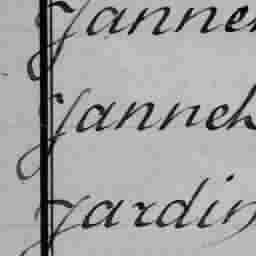 Janneh
Janneh
Jardin